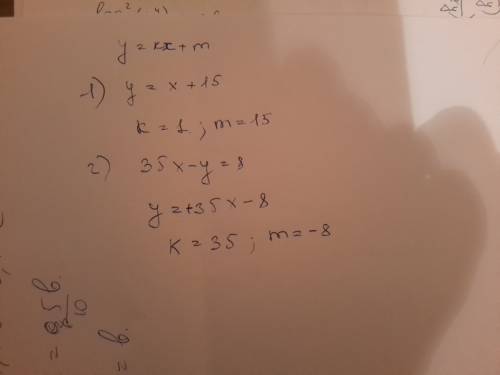 y = kx + m
1) y = x + 15
k = 1 ; m = 15
2) 35x - y = 8
y = +35x - 8
k = 35 ; m = -8